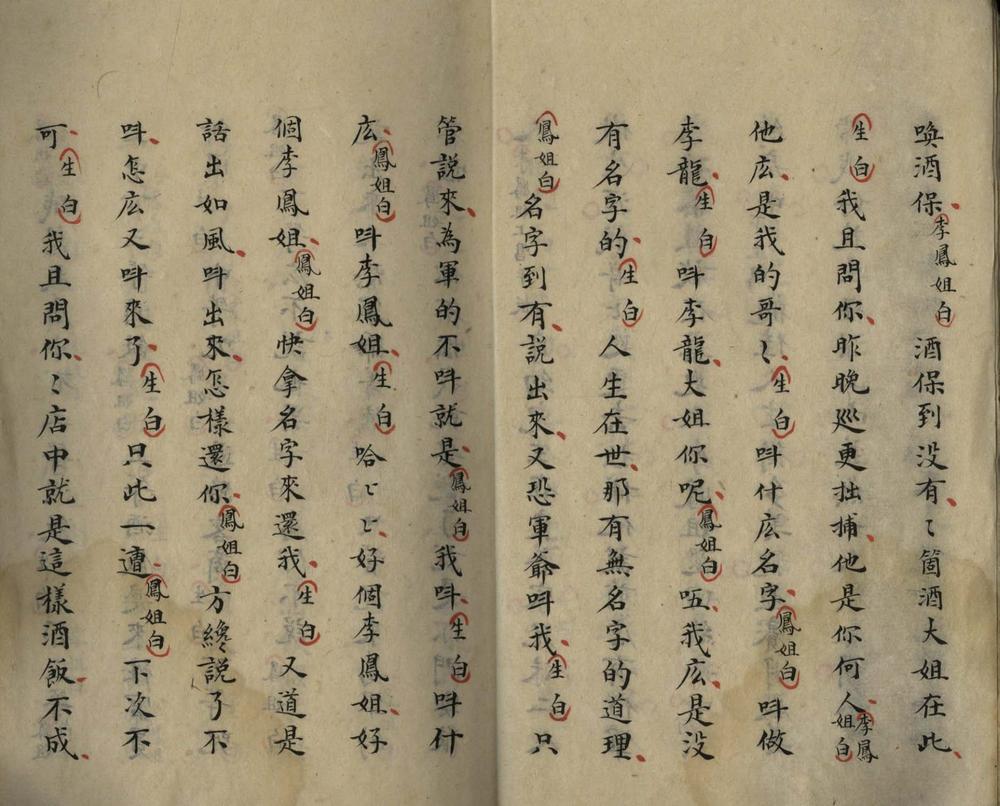 喚酒保李鳳姐白酒保到没有〻箇酒大姐在此
生白我且問你昨晚巡更拙捕他是你何人李鳳姐白
他庅是我的哥〻生白呌什庅名字鳳姐白呌做
李龍生白呌李龍大姐你呢鳳姐白㕶我庅是没
有名字的生白人生在世那有無名字的道理
鳳姐白名字到有説出來又恐軍爺呌我生白只
管説來為軍的不呌就是鳳姐白我呌生白呌什
庅鳳姐白呌李鳳姐生白哈〻〻好個李鳳姐好
個李鳳姐鳳姐白快拿名字來還我生白又道是
話出如風呌出來怎樣還你鳳姐白方纔説了不
呌怎庅又呌來了生白只此一遭鳳姐白下次不
可生白我且問你〻店中就是這樣酒飯不成